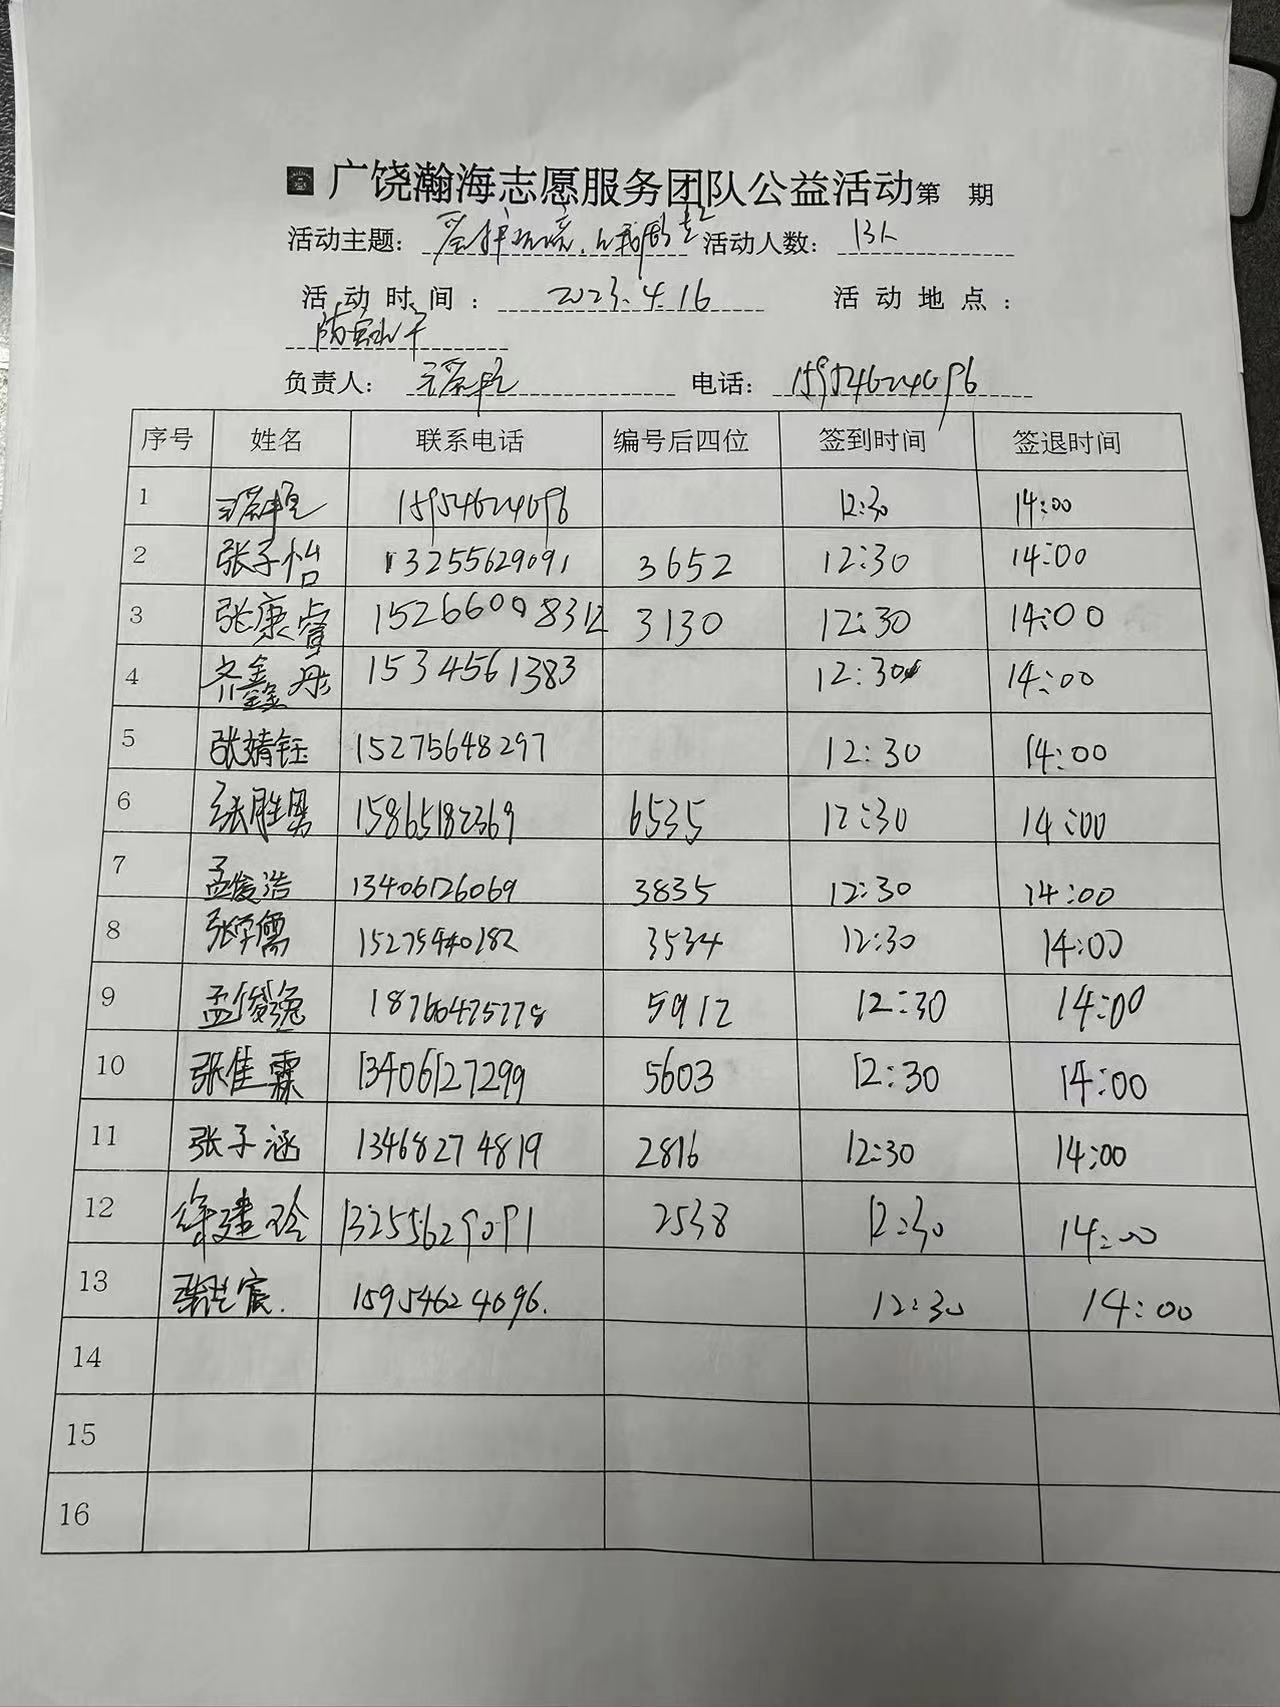 广饶瀚海志愿服务团队公益活动第 期
活动主题: 爱护环境,从我做起 活动人数: 13人
活动时间: 2023.4.16 活动地点:
负责人: 电话: 15954624096
序号 姓名 联系电话 编号后四位 签到时间 签退时间
1 15954624096 12:30 14:00
2 张子怡 13255629091 3652 12:30 14:00
3 张康睿 15266008312 3130 12:30 14:00
4 齐鑫彤 15345561383 12:30 14:00
5 张婧钰 15275648297 12:30 14:00
6 张胜男 15865182369 6535 12:30 14:00
7 孟俊浩 13406126069 3835 12:30 14:00
8 张学儒 15275440182 3534 12:30 14:00
9 孟俊逸 18766475778 5912 12:30 14:00
10 张佳霖 13406127299 5603 12:30 14:00
11 张子涵 13468274819 2816 12:30 14:00
12 徐建玲 13255629091 2538 12:30 14:00
13 15954624096. 12:30 14:00
14
15
16